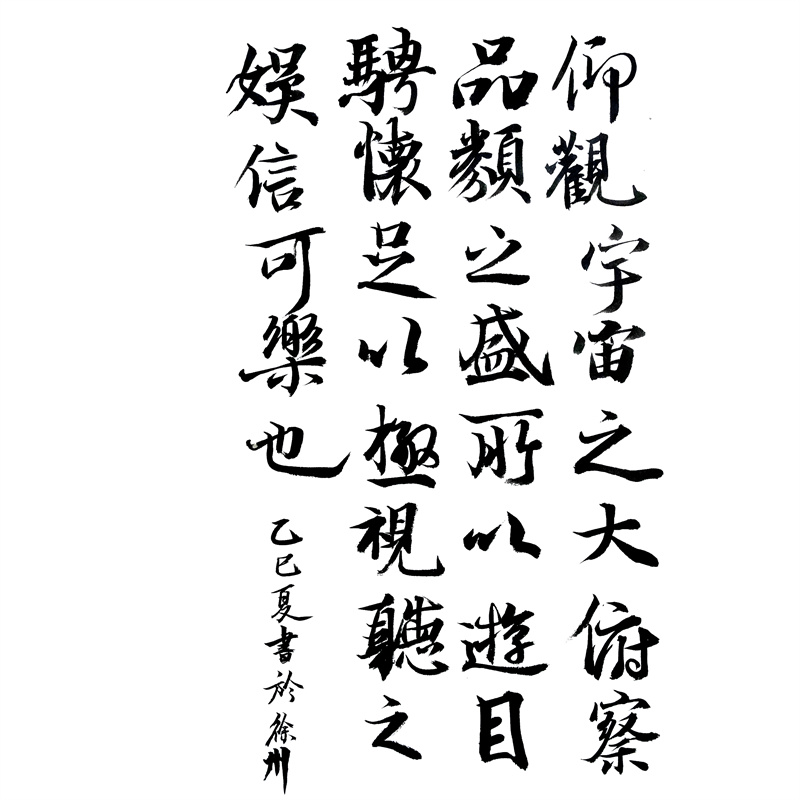 仰觀宇宙之大俯察
品類之盛所以遊目
騁懷足以極視聽之
娛信可樂也
乙巳夏書於徐州